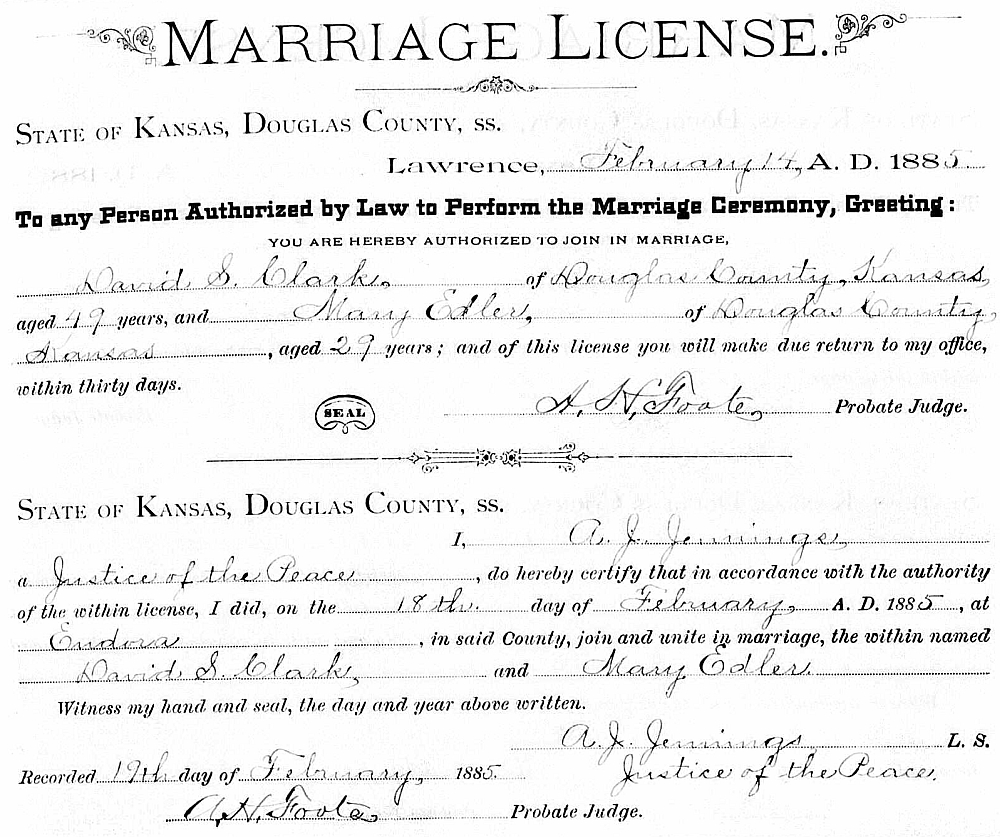 MARRIAGE LICENSE.
STATE OF KANSAS, DOUGLAS COUNTY, ss.
Lawrence, February 14, A. D. 1885.
To any Person Authorized by Law to Perform the Marriage Ceremony, Greeting:
YOU ARE HEREBY AUTHORIZED TO JOIN IN MARRIAGE,
David S. Clark, of Douglas County, Kansas,
aged 49 years, and Mary Edler, of Douglas County,
Kansas, aged 29 years; and of this license you will make due return to my office,
within thirty days.
SEAL A. H. Foote, Probate Judge.
STATE OF KANSAS, DOUGLAS COUNTY, ss.
I, A. J. Jennings,
a Justice of the Peace, do hereby certify that in accordance with the authority
of the within license, I did, on the 18th. day of February, A. D. 1885, at
Eudora, in said County, join and unite in marriage, the within named
David S. Clark, and Mary Edler.
Witness my hand and seal, the day and year above written.
A. J. Jennings, L. S.
Recorded 19th day of February, 1885. Justice of the Peace.
A. H. Foote, Probate Judge.